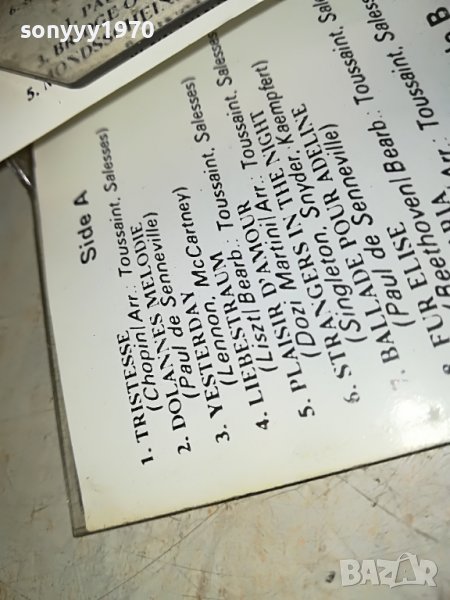 sonyyy1970
3. BRIDGE O
5. MONDSCHEIN
Side A
1. TRISTESSE
(Chopin/Arr.: Toussaint, Salesses)
2. DOLANNES MELODIE
(Paul de Senneville)
3. YESTERDAY
(Lennon, McCartney)
4. LIEBESTRAUM
(Liszt/Bearb.: Toussaint, Salesses)
5. PLAISIR D'AMOUR
(Dozi Martini/Arr.: Toussaint, Salesses)
6. STRANGERS IN THE NIGHT
(Singleton, Snyder, Kaempfert)
7. BALLADE POUR ADELINE
(Paul de Senneville)
8. FUR ELISE
(Beethoven/Bearb.: Toussaint, Sales
ARIA
Arr.: Toussaint
B
BAZAR